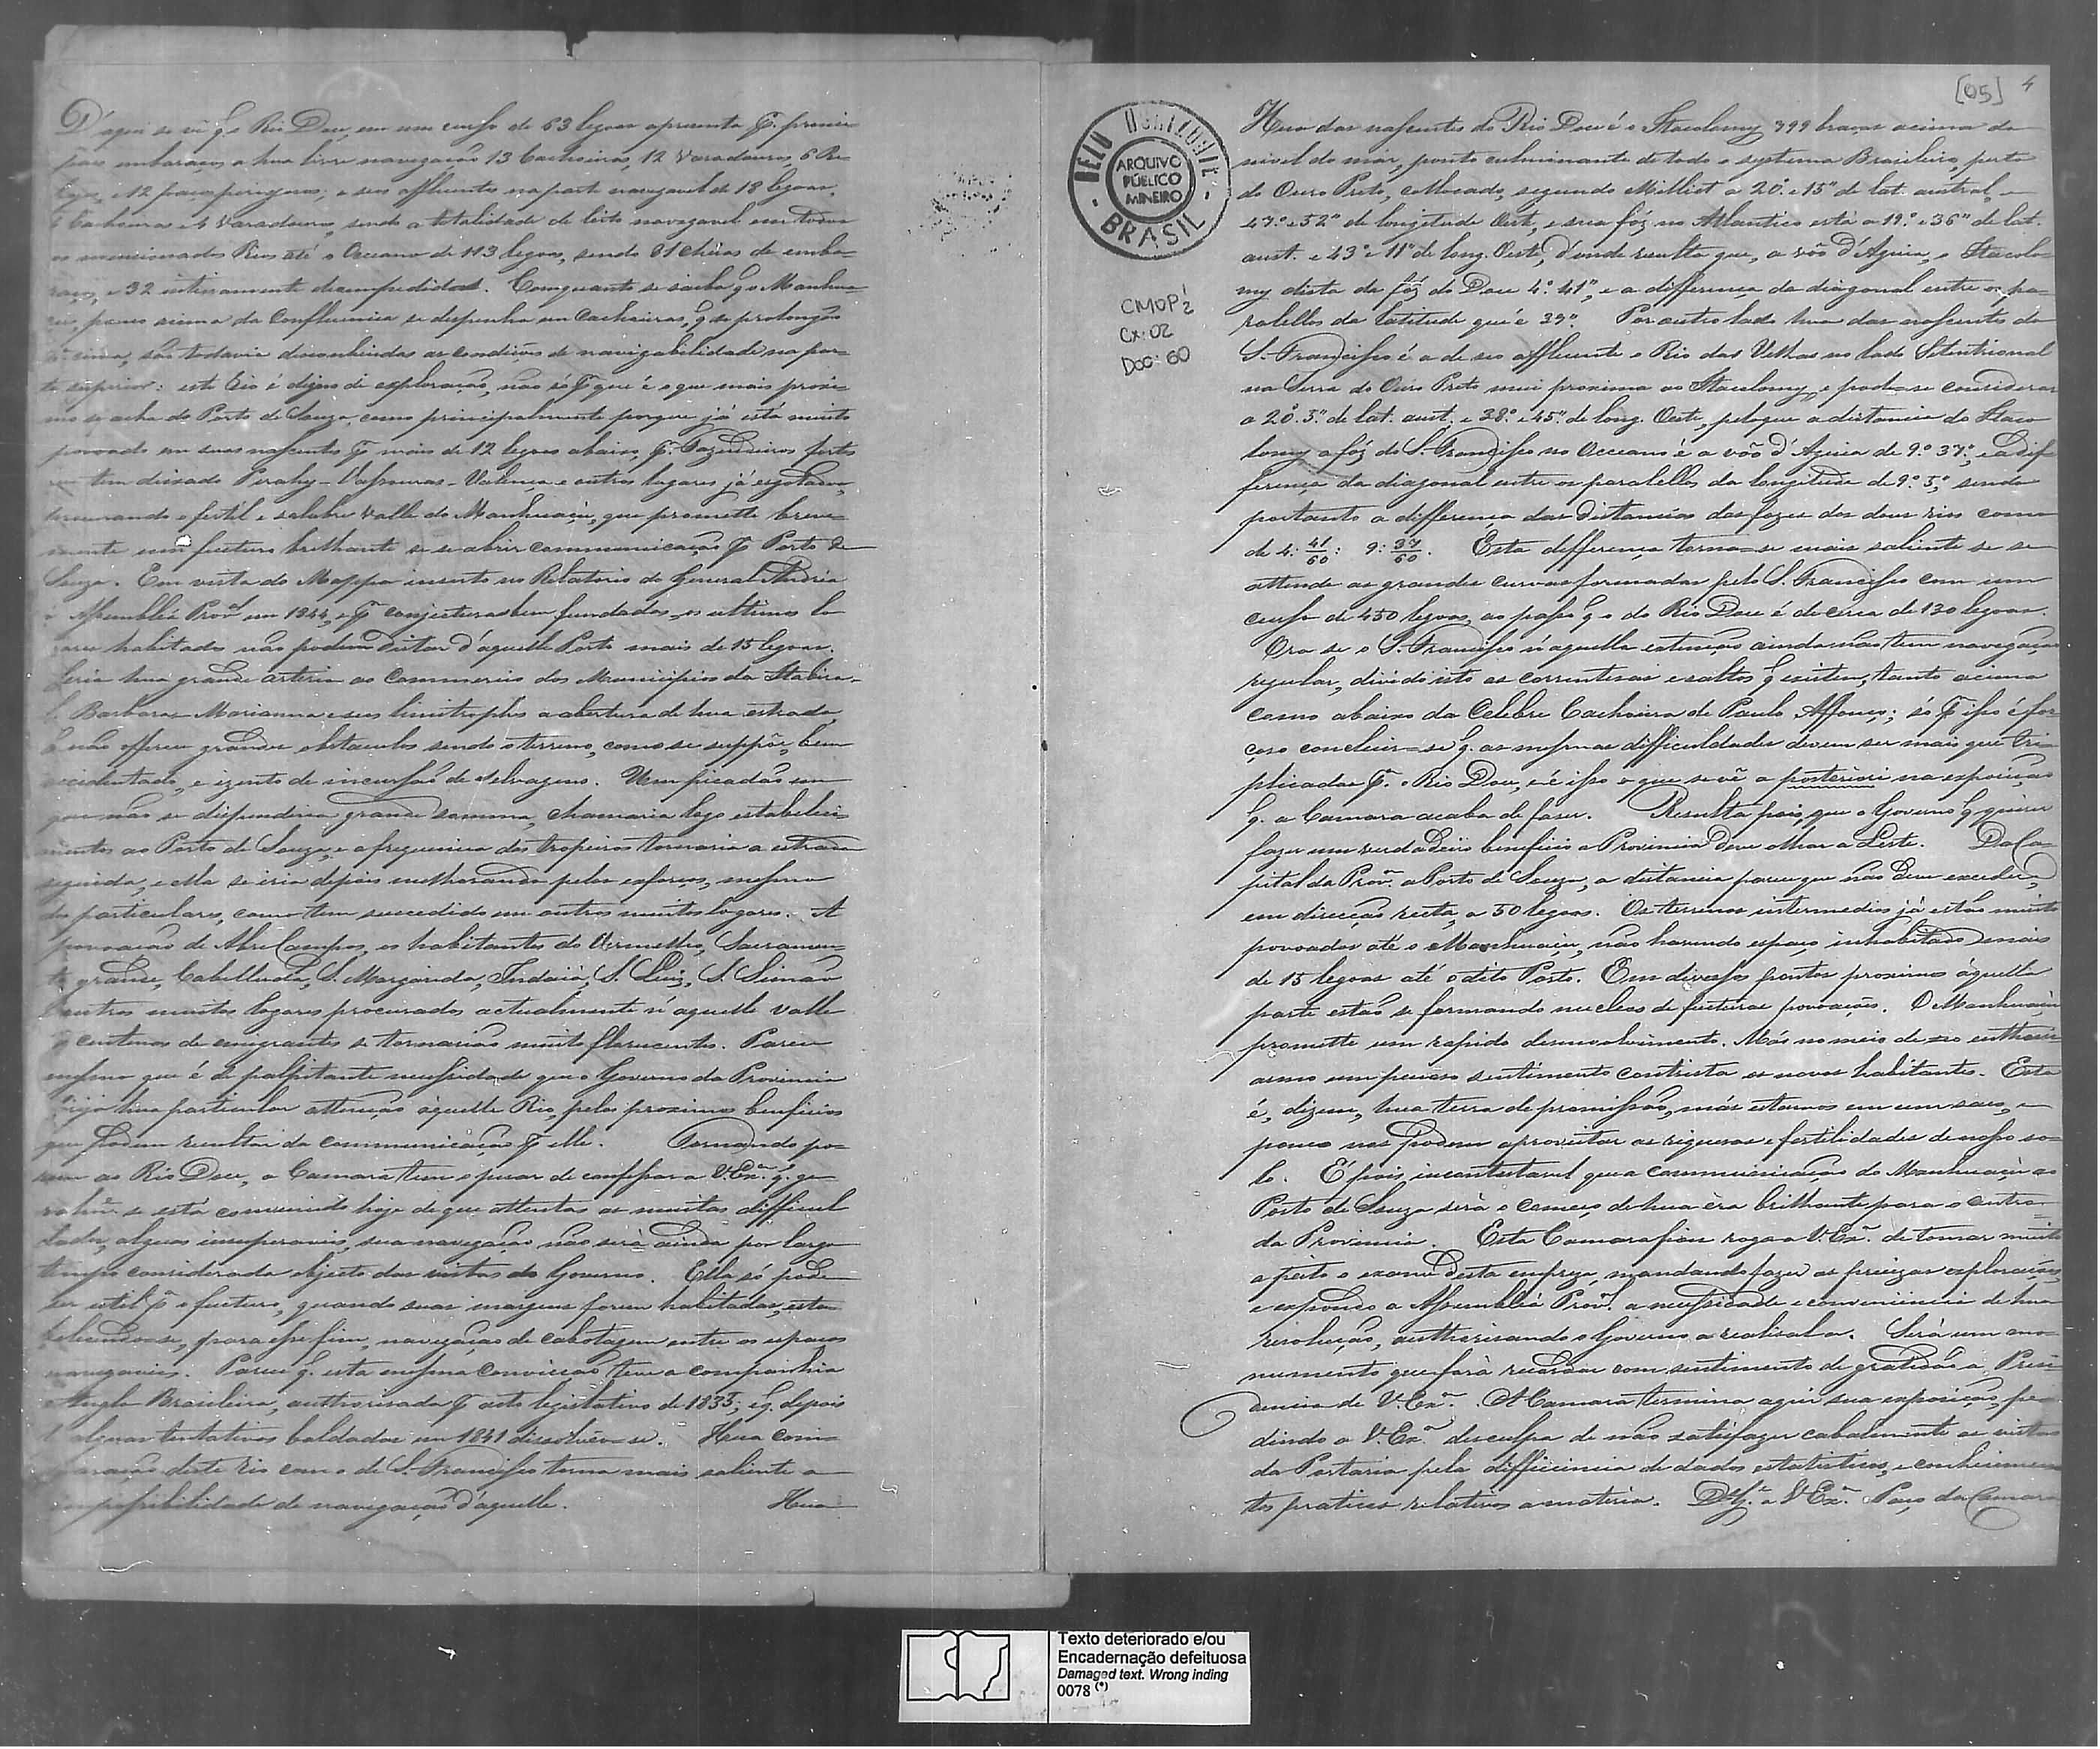 D'aqui se vê q̃ o Rio Doce, em um curso de 63 legoas apresenta
embaraços a hua livre navegação 13 Cachoeiras, 12 Varadouros, 6 Re-
e 12 perigosos; e seus affluentes na parte navegavel de 18 legoas,
Cachoeira e 4 Varadouros, sendo a totalidade de leito navegavel em todos
os mencionados Rios até o Occeano de 113 legoas, sendo 81 cheias de emba-
raços, e 32 inteiramente desimpedidas. Comquanto se saiba q̃ o Manhua-
pouco acima da Confluencia se despenha em Cachoeiras, q̃ se prolongão
acima, são todavia desconhecidas as condições de navigabilidade na par-
te superior: este Rio é digno de exploração, não só pr que é o que mais proxi-
mo se acha do Porto de Souza, como principalmente porque já está muito
povoado em suas nascentes pr mais de 12 legoas abaixo, pr Fazendeiros fortes
que tem deixado Pirahy - Vassouras - Valença e outros lugares já esgotados,
procurando o fertil e salubre valle do Manhuaçu, que promette breve-
mente um futuro brilhante se se abrir communicação pa o Porto de
Souza. Em vista do Mappa inserto no Relatorio do General Andréa
á Assembléa Proval em 1844, e pr conjecturas bem fundadas, os ultimos lo-
gares habitados não podem distar d'aquelle Porto mais de 15 legoas.
Seria hua grande arteria ao Commercio dos Municipios da Itabira-
S. Barbara - Marianna e seus limitrophes a abertura de hua estrada,
q̃ não offerece grandes obstaculos sendo o terreno, como se suppõe, bem
accidentado, e izento de incursão de selvagens. Uma picada em
que não se dispenderia grande somma, chamaria logo estabeleci-
mentos ao Porto de Souza, e a frequencia dos tropeiros tornaria a estrada
seguida, e ella se iria depois melhorando pelos esforços, mesmo
dos particulares, como tem succedido em outros muitos logares. A
povoação de Abre Campo, os habitantes do Vermelho, Sacramen-
to grande, Cabelluda, S. Margarida, Indaiá, S. Luiz, S. Simão
e outros muitos logares procurados actualmente n'aquelle valle
pr centenas de emigrantes se tornarião muito florescentes. Parece
mesmo que é de palpitante necessidade que o Governo da Provincia
dirija hua particular attenção áquelle Rio, pelos proximos beneficios
que podem resultar da communicação pr elle. Tornando po-
rem ao Rio Doce, a Camara tem o pesar de confessar a V. Exa. q̃ ge-
ralme. se está convencido hoje de que attentas as muitas difficul-
dades, algumas insuperaveis, sua navegação não será ainda por largo
tempo considerada objecto das vistas do Governo. Ella só pode
ser util pa o futuro, quando suas margens forem habitadas, esta-
belecendo-se, para esse fim, navegação de cabotagem entre os espaços
navegaveis. Parece q̃ esta mesma convicção teve a companhia
Anglo Brasileira, authorisada pr acto legislativo de 1835; e q̃ depois
de algumas tentativas baldadas em 1841 dissolveo-se. Hua com-
paração deste Rio com o de S. Francisco torna mais saliente a
impossibilidade de navegação d'aquelle. Hua
[05] 4
BELO HORIZONTE
ARQUIVO
PÚBLICO
MINEIRO
- BRASIL -
CMOP 1/2
Cx: 02
Doc: 60
Hua das nascentes do Rio Doce é o Itacolomy 999 braças acima do
nivel do mar, ponto culminante de todo o systema Brasileiro, perto
do Ouro Preto, collocado, segundo Milliet a 20.° e 15" de lat. austral, e
47.° e 52" de longitude Oest., e sua fóz no Atlantico está a 19.° e 36" de lat.
aust. e 43.° e 11" de long. Oeste, d'onde resulta que, a vôo d'Aguia, o Itacolo-
my dista da fóz do Doce 4.° 41", e a differença da diagonal entre os pa-
rallelos da latitude que é 39". Por outro lado hua das nascentes do
S. Francisco é a de seo affluente o Rio das Velhas no lado Setentrional
na Serra do Ouro Preto mui proxima ao Itacolomy, e pode-se considerar
a 20.° 3." de lat. aust. e 38.° e 45." de long. Oeste, peloque a distancia do Itaco-
lomy a fóz do S. Francisco no Occeano é a vôo d'Aguia de 9.° 37", e a dif-
ferença da diagonal entre os parallelos da longitude de 9.° 5", sendo
portanto a differença das distancias das fozes dos dous rios como
de 4: 41/60 : 9: 37/60. Esta differença torna-se mais saliente se se
attende as grandes curvas formadas pelo S. Francisco com um
curso de 450 legoas, ao passo q̃ o do Rio Doce é de cerca de 130 legoas.
Ora se o S. Francisco n'aquella extenção ainda não tem navegação
regular, devido isto as correntesas e saltos q̃ existem, tanto acima
como abaixo da Celebre Cachoeira de Paulo Affonço; só pr isso é for-
çoso concluir-se q̃. as mesmas difficuldades devem ser mais que tri-
plicadas pa. o Rio Doce, e é isso o que se vê a posteriori na exposição
q̃. a Camara acaba de faser. Resulta pois, que o Governo q̃ quiser
fazer um verdadeiro beneficio a Provincia deve olhar a Leste. Da Ca-
pital da Prova. a Porto de Souza, a distancia parece que não deve exceder,
em direcção recta, a 50 legoas. Os terrenos intermedios já estão muito
povoados até o Manhuaçu, não havendo espaço inhabitado mais
de 15 legoas até o dito Porto. Em diversos pontos proximos áquella
parte estão se formando nucleos de futuras povoações. O Manhuaçu
promette um rapido desenvolvimento. Mas no meio de seo enthusi-
asmo um penoso sentimento contrista os novos habitantes. Esta
é, dizem, hua terra de promissão, más estamos em um saco, e
pouco nos podem aproveitar as riquesas e fertilidades de nosso so-
lo. É pois incontestavel que a communicação do Manhuaçu ao
Porto de Souza será o começo de hua éra brilhante para o centro
da Provincia. Esta Camara pois roga a V. Exa. de tomar muito
a peito o exame desta empreza, mandando fazer as precizas explorações,
e expondo a Assembléa Proval. a necessidade e conveniencia de hua
resolução, authorisando o Governo a realisala. Será um mo-
numento que fará recordar com sentimento de gratidão a Presi-
dencia de V. Exa. A Camara termina aqui sua exposição, pe-
dindo a V. Exa. desculpa de não satisfazer cabalmente as vistas
da Portaria pela difficiencia de dados estatisticos, e conhecimen-
tos praticos relativos a materia. Ds. Ge. a V. Exa. Paço da Camara
Texto deteriorado e/ou
Encadernação defeituosa
Damaged text. Wrong inding
0078 (*)